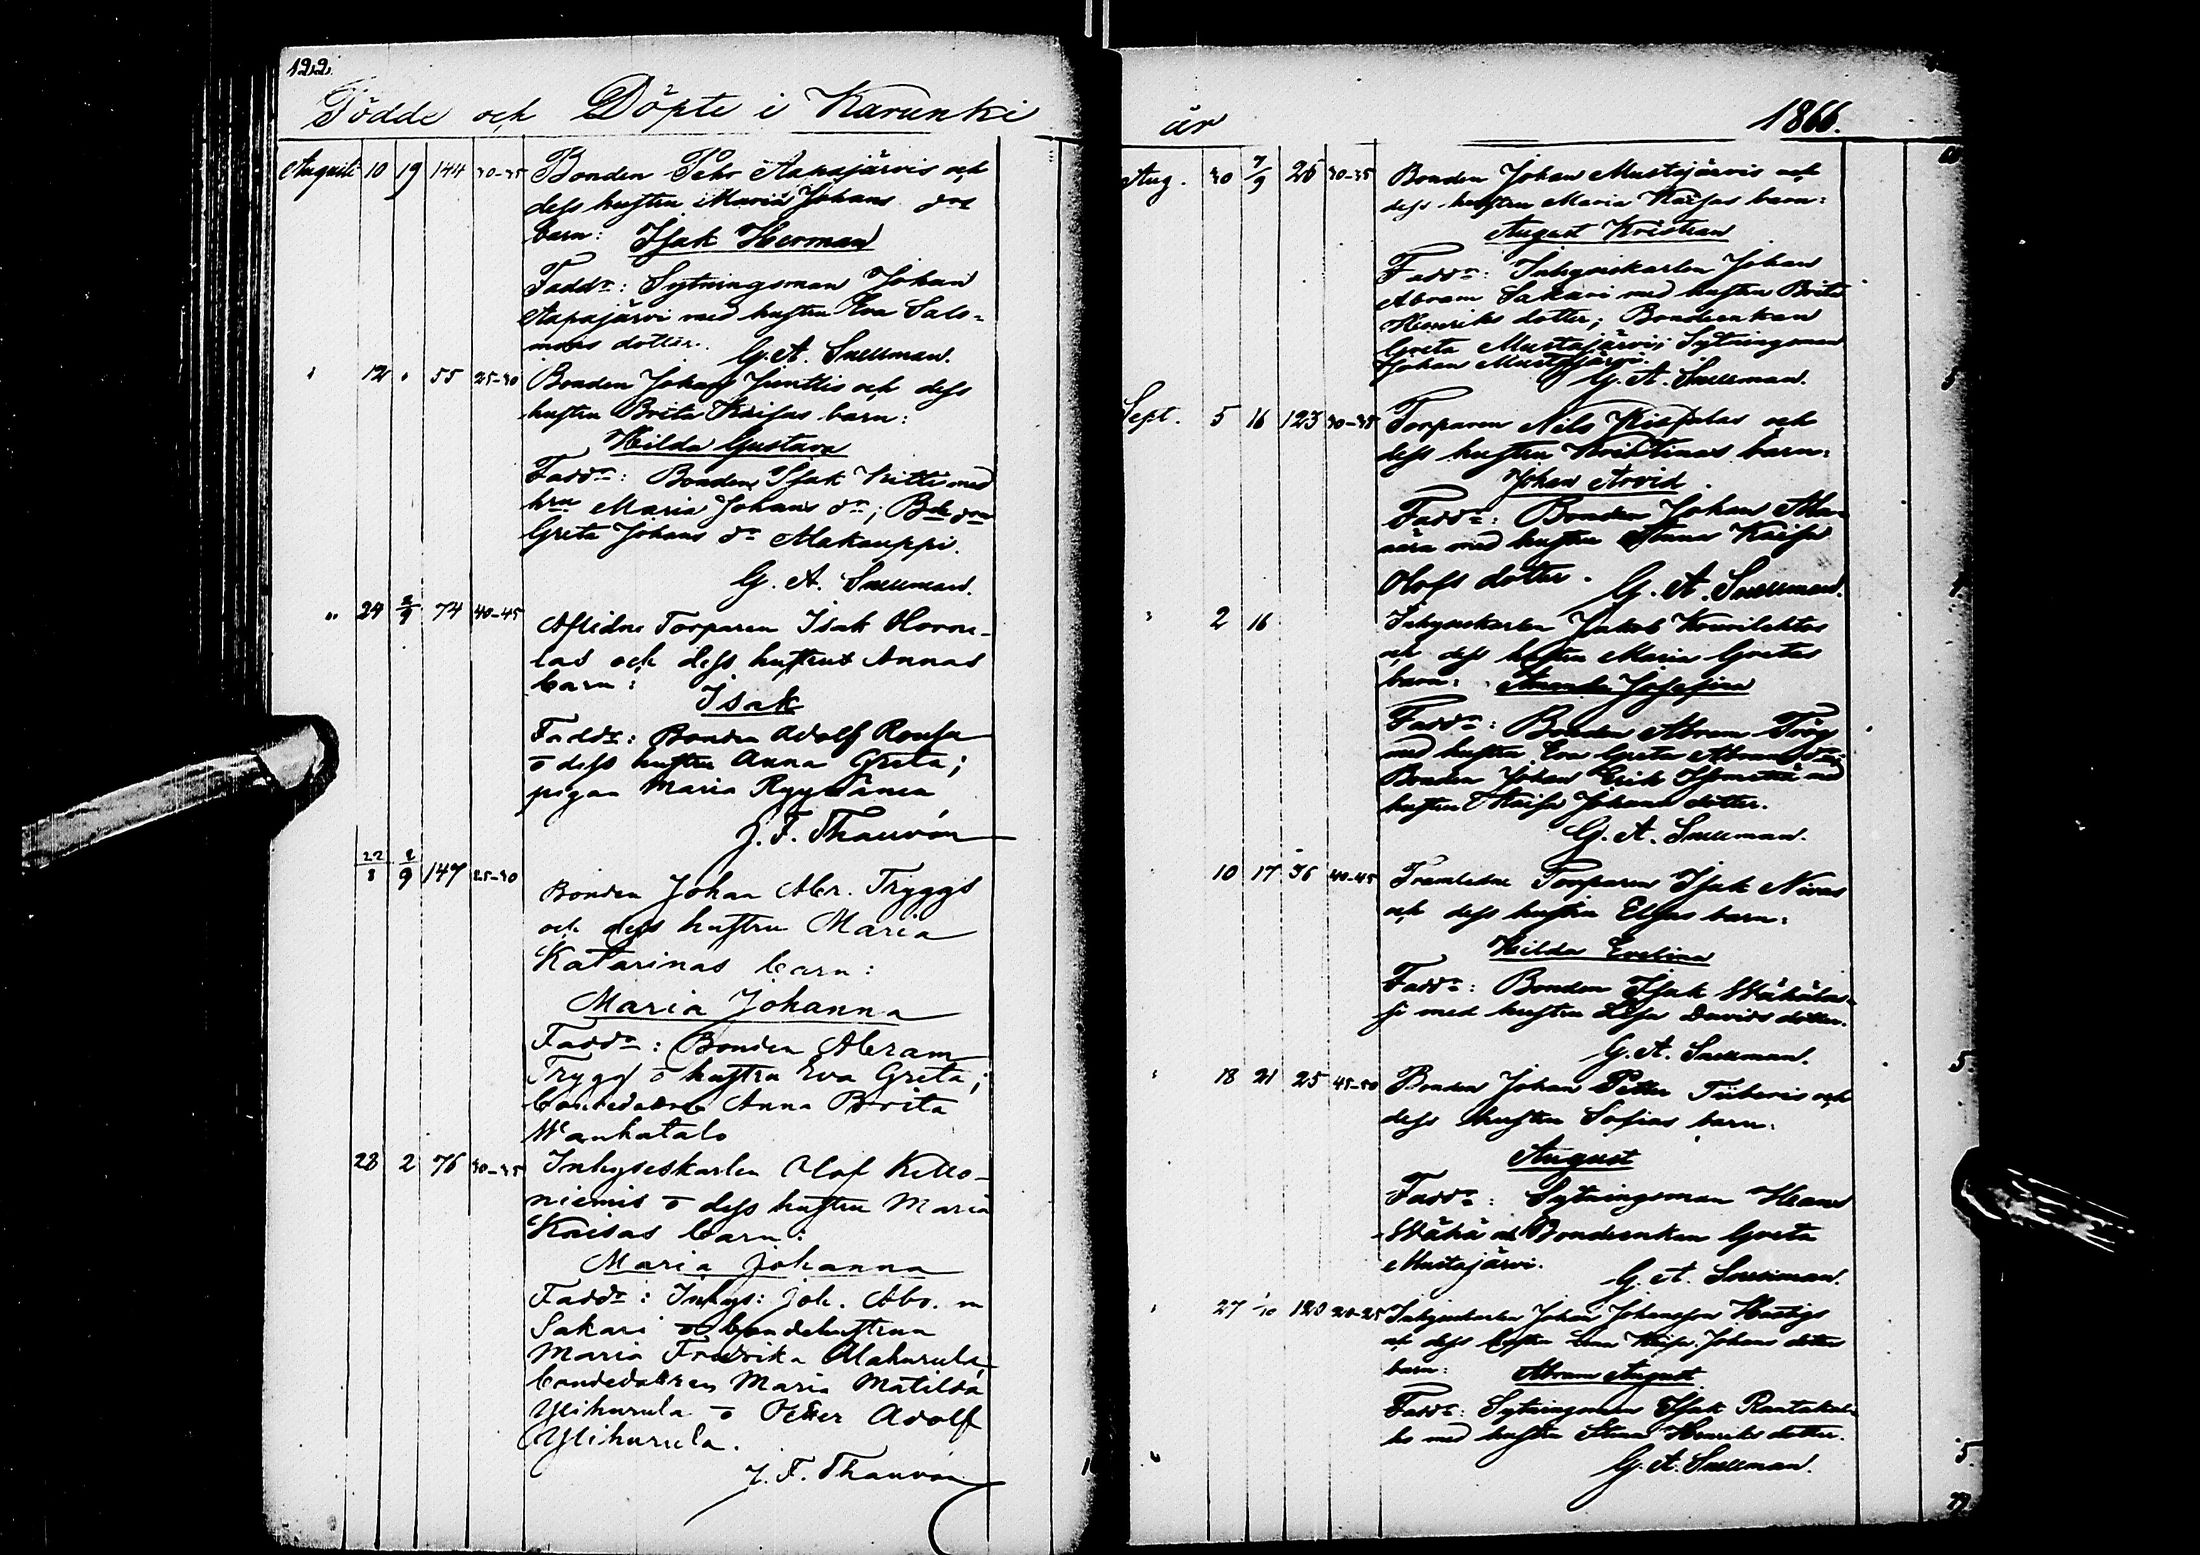 122.
Födde och Döpte i Karunki
Augusti 10 19 144 30-35 Bonden Pehr Aapajärvis och
dess hustru Maria Johans drs
barn: Isak Herman
Faddr: Sytningsman Johan
Aapajärvi med hustru Eva Salo-
mons dotter. G. A. Snellman.
" 12 " 55 25-30 Bonden Johan Junttis och dess
hustru Brita Kaisas barn:
Hilda Gustava
Faddr: Bonden Isak Kitti med
hru Maria Johans dr; Bde dn
Greta Johans dr Alakauppi.
G. A. Snellman.
" 24 2/9 74 40-45 Aflidne Torparen Isak Horne-
las och dess hustrus Annas
barn: Isak
Faddr: Bonden Adolf Roufa
o dess hustru Anna Greta;
pigan Maria Ryynänen
J. F. Thauvón
22/8 2/9 147 25-30 Bonden Johan Abr. Tryggs
och dess hustru Maria
Katarinas barn:
Maria Johanna
Faddr: Bonden Abram
Trygg o hustru Eva Greta;
bondedottr Anna Brita
Wanhatalo
28 2 76 30-35 Inhyseskarlen Olof Kello-
niemis o dess hustru Maria
Kaisas barn:
Maria Johanna
Faddr: Inhys: Joh. Abr. m
Sakari o bondehustrun
Maria Fredrika Alahurula
bondedottren Maria Matilda
Ylihurula o Petter Adolf
Ylihurula.
J. F. Thauvón
år 1866.
Aug. 30 7/9 26 30-35 Bonden Johan Mustajärvis och
dess hustru Maria Kaisas barn:
August Kristian
Faddr: Inhyseskarlen Johan
Abram Sakari med hustru Brita
Henriks dotter; Bondeenkan
Greta Mustajärvi; Sytningsman
Johan Mustajärvi.
G. A. Snellman.
Sept. 5 16 123 30-35 Torparen Nils och
dess hustru Kristinas barn:
Johan Arvid.
Faddr: Bonden Johan
med hustru Anna Kaisa
Olofs dotter. G. A. Snellman.
" 2 16 Inhyseskarlen Jakob Kourilehtos
och dess hustru Maria Gretas
barn: Amanda Josefina
Faddr: Bonden Abram Trög
med hustru Eva Greta Abrams dr;
Bonden Johan Erik med
hustru Kaisa Johans dotter.
G. A. Snellman.
10 17 36 40-45 Framledne Torparen Isak Nivas
och dess hustru Elsas barn:
Hilda Evelina
Faddr: Bonden Isak
med hustru Lisa Davids dotter.
G. A. Snellman.
" 18 21 25 45-50 Bonden Johan Petter och
dess hustru Sofias barn:
August
Faddr: Sytningsman Hans
Wähä och Bondeenkan Greta
Mustajärvi.
G. A. Snellman.
" 27 1/10 120 20-25 Inhyseskarlen Johan Johansson
och dess hustru Lena Kaisa Johans dotters
barn: Abram August
Faddr: Sytningsman Isak Rantakal-
lio med hustru Stina Henriks dotter.
G. A. Snellman.